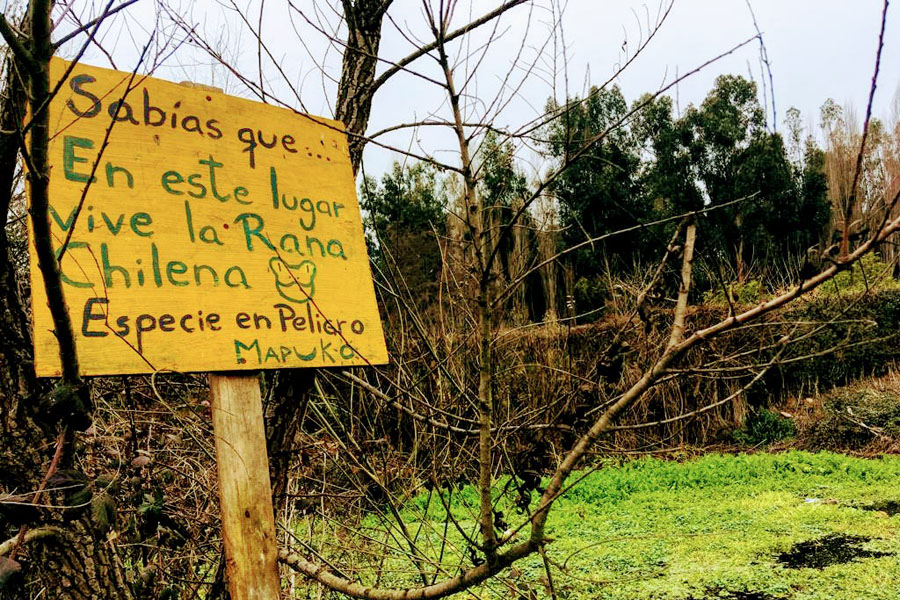 Sabías que....
En este lugar
Vive la Rana
Chilena
Especie en Peligro
MAPUKO